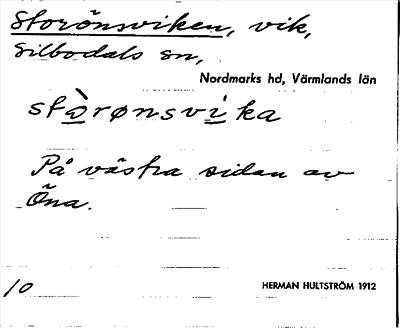 Storönsviken, vik,
Silbodals sn,
Nordmarks hd, Värmlands län
stòrønsvika
På västra sidan av
Öna.
10
HERMAN HULTSTRÖM 1912